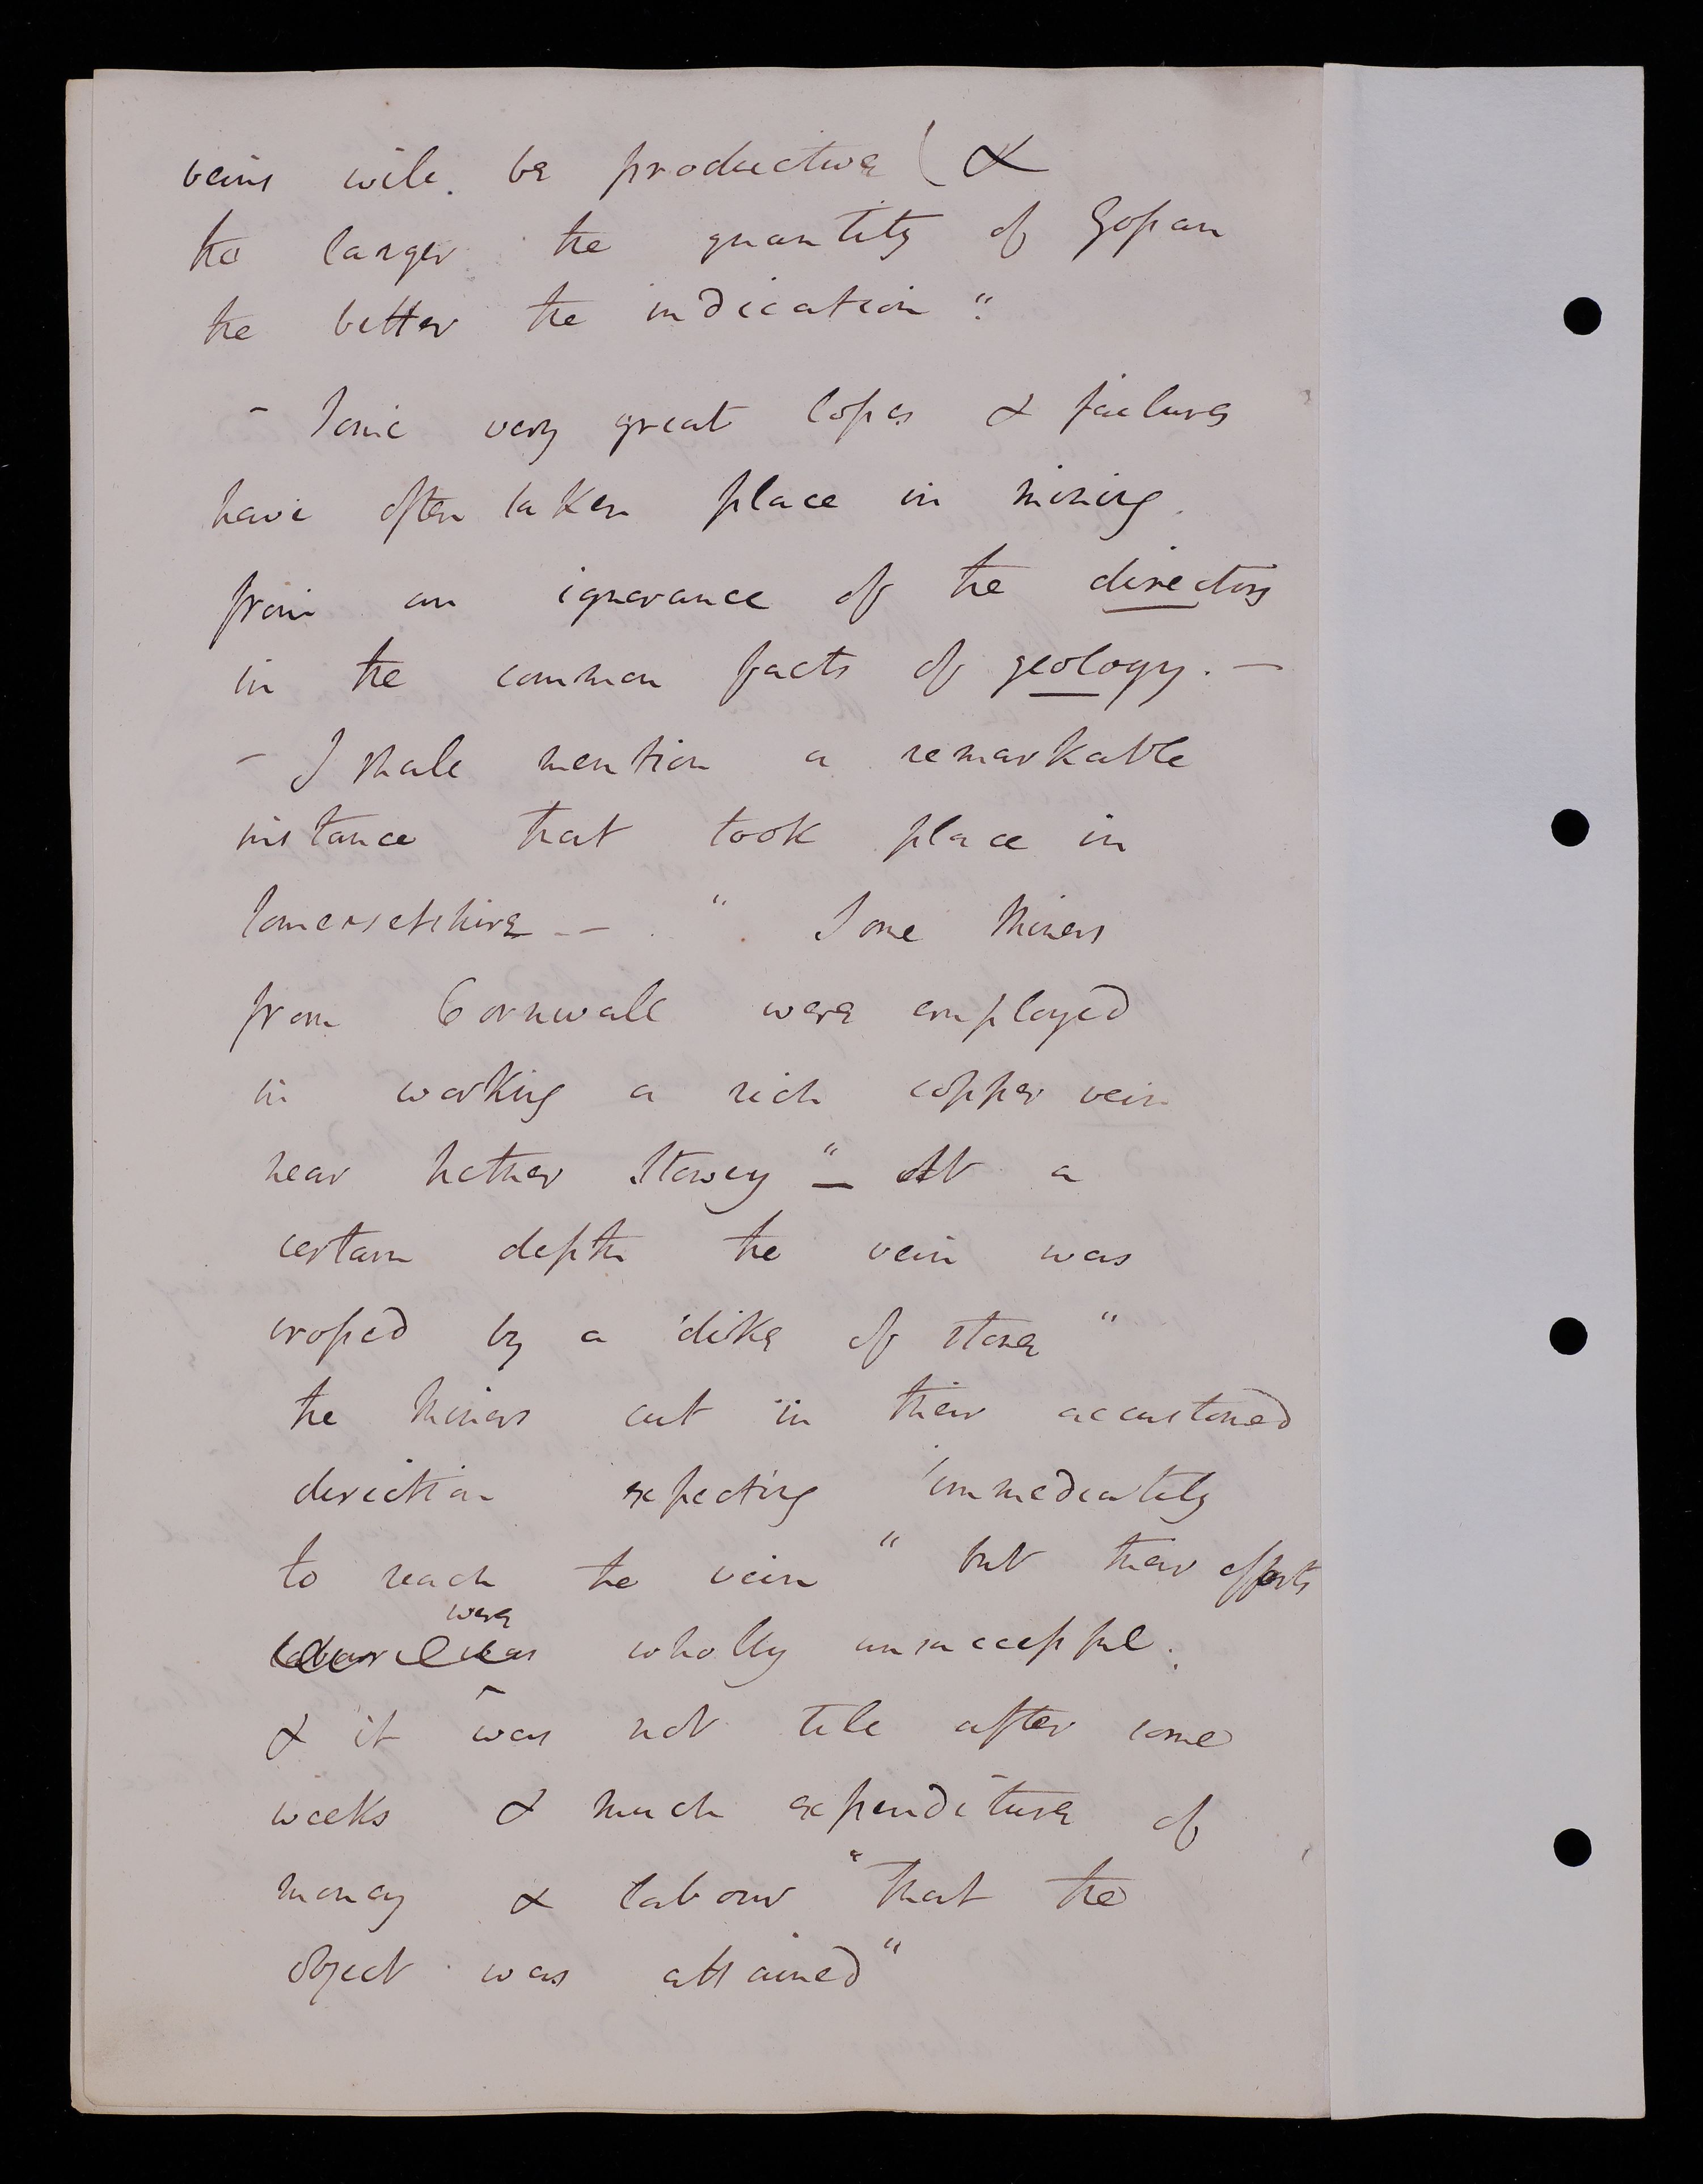 veins will. be productive ( &
the larger the quantity of Gossan
the better the indication".
- Some very great losses & failures
have often taken place in mining.
from an ignorance of the directors
in the common facts of geology. —
- I shall mention a remarkable
instance that took place in
Somersetshire -- " Some Miners
from Cornwall were employed
in working a rich copper vein
near Nether Stowey" — At a
certain depth the vein was
crossed by a dike of stone "
the Miners cut in their accustomed
direction expecting immediately
to reach the vein " but their efforts
labour was were wholly unsuccessful.
& it was not till after some
weeks & much expenditure of
money & labour "that the
object was attained"